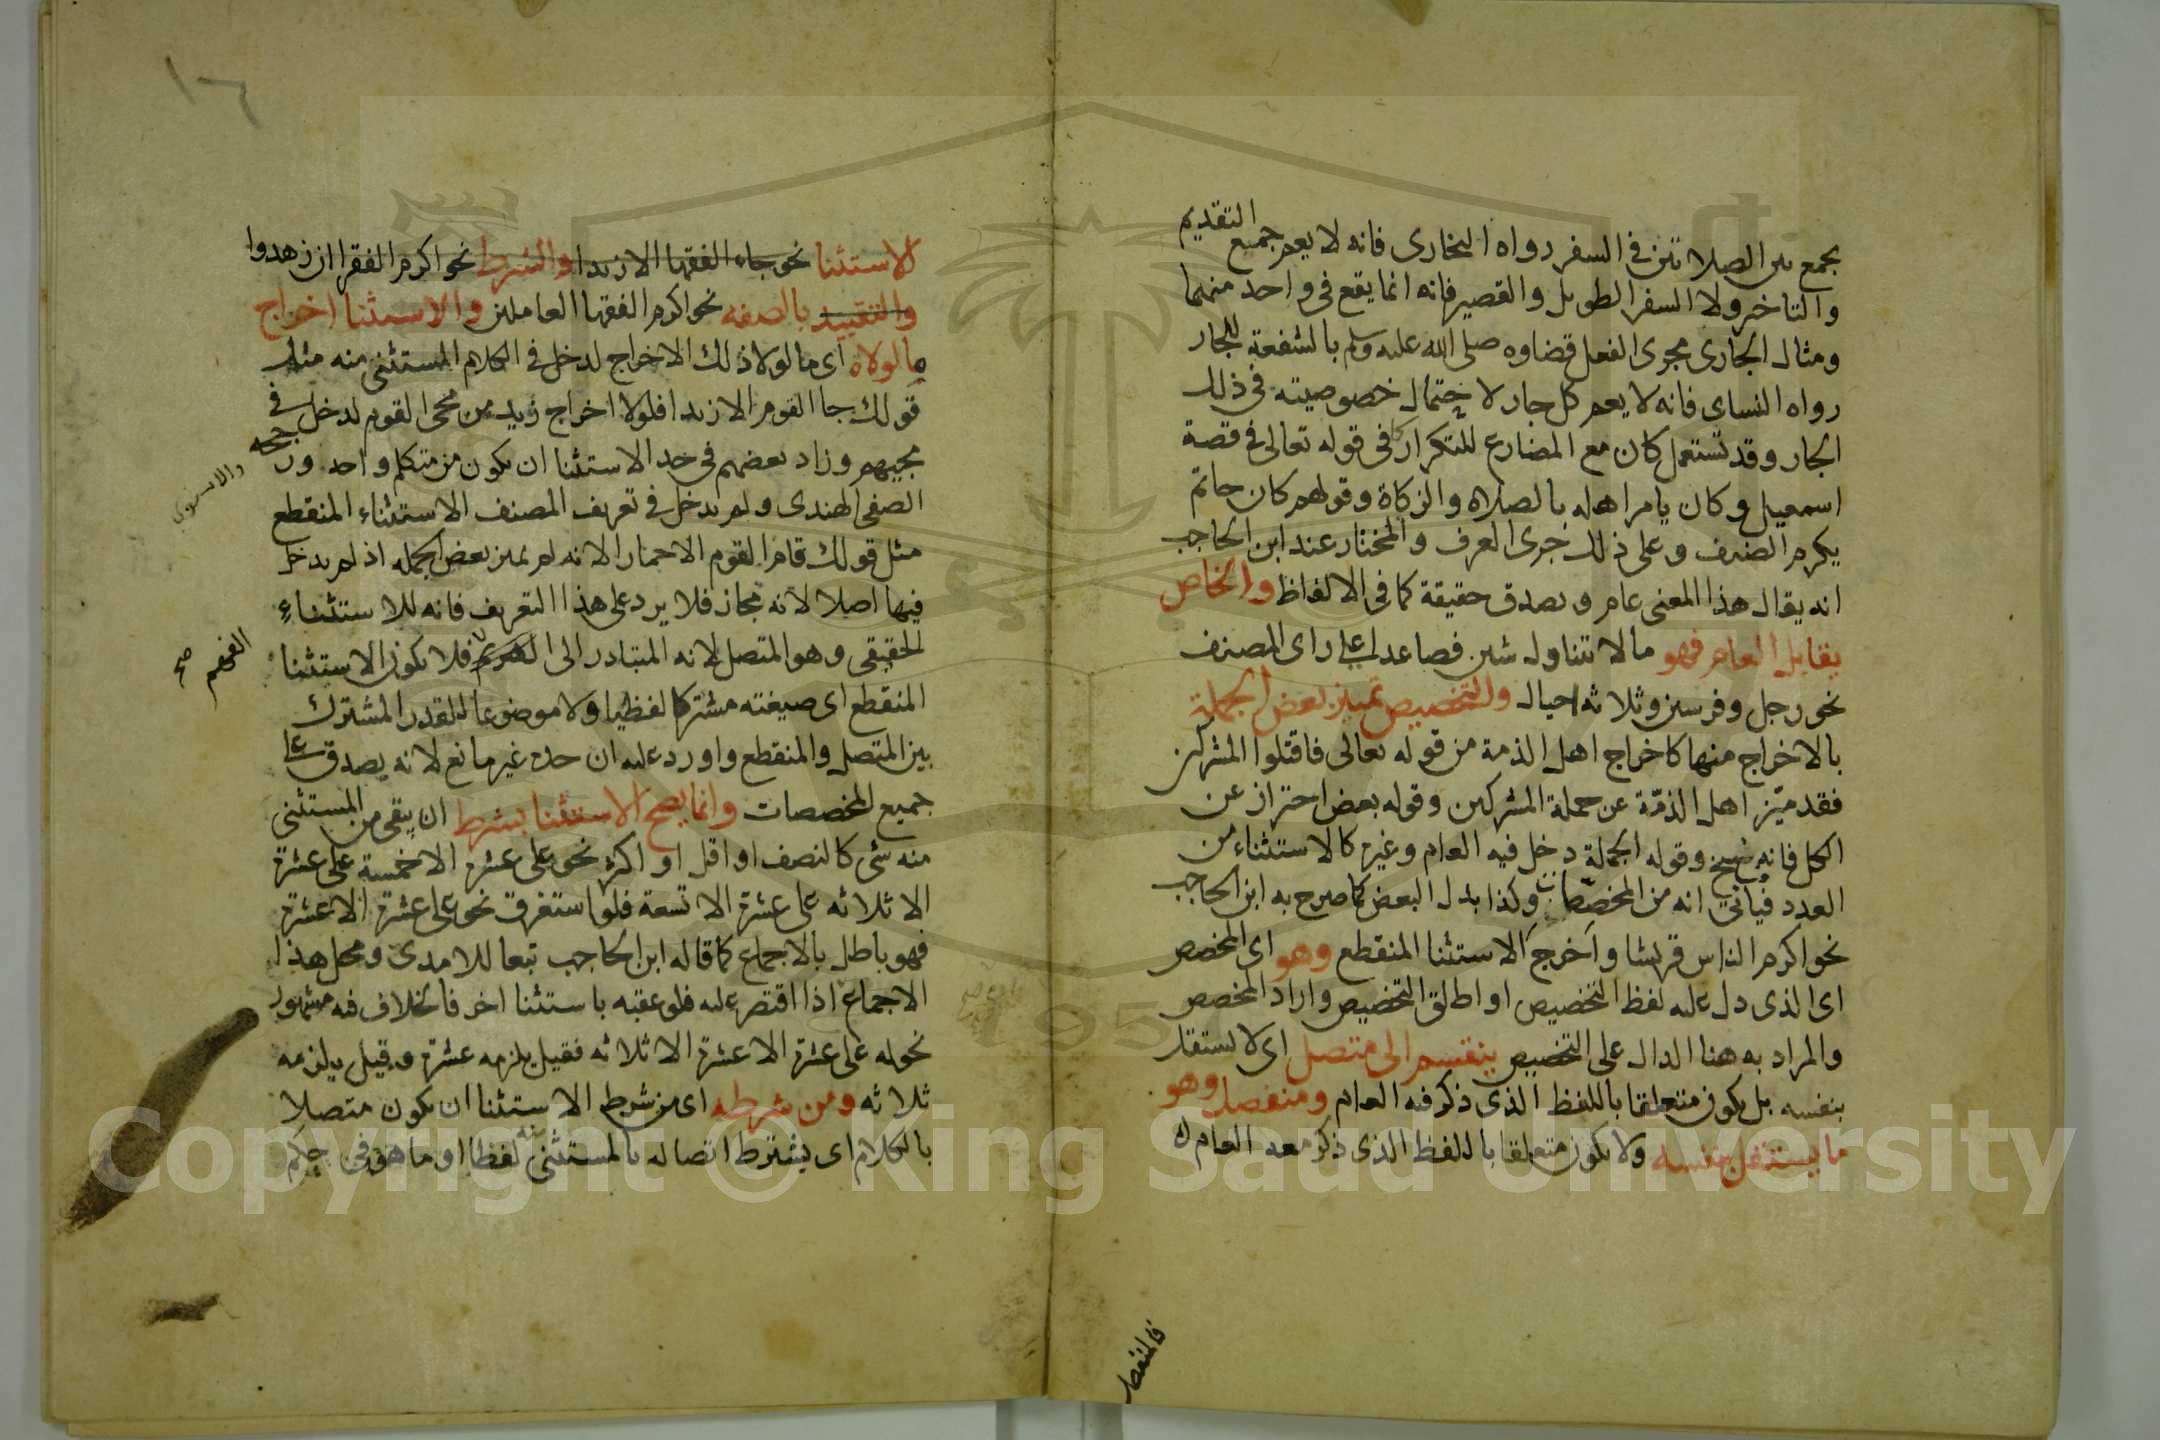 يجمع بين الصلاتين في السفر رواه البخاري فانه لا يعم جميع التقديم
والتاخير ولا السفر الطويل والقصير فانه انما يقع في واحد منهما
ومثال الجاري مجرى الفعل قضاوه صلى الله عليه وسلم بالشفعة للجار
رواه النساى فانه لا يعم كل جار لاحتمال خصوصيته في ذلك
الجار وقد تستعمل كان مع المضارع للتكرار كما في قوله تعالى في قصة
اسمعيل وكان يامر اهله بالصلاه والزكاة وقولهم كان حاتم
يكرم الضيف وعلى ذلك جرى العرف والمختار عند ابن الحاجب
انه يقال هذا المعنى عام ويصدق حقيقة كما في الالفاظ والخاص
يقابل العام فهو مالا يتناول شين فصاعدا على راى المصنف
نحو رجل وفرسين وثلاثه اجبال والتخصيص تمييز بعض الجملة
بالاخراج منها كاخراج اهل الذمة من قوله تعالى فاقتلوا المشركين
فقد ميّز اهل الذمّة عن جملة المشركين وقوله بعض احتراز عن
الكل فانه نسخ وقوله الجملة دخل فيه العام وغيره كالاستثناء من
العدد فياتي انه من المخصصات وكذا بدل البعض كما صرح به ابن الحاجب
نحو اكرم الناس قريشا واخرج الاستثنا المنقطع وهو اى المخصص
اى الذى دل عليه لفظ التخصيص او اطلق التخصيص واراد المخصص
والمراد به هنا الدال على التخصيص ينقسم الى متصل اى لا يستقل
بنفسه بل يكون متعلقا باللفظ الذى ذكر فيه العام ومنفصل وهو
ما يستقل بنفسه ولا يكون متعلقا باللفظ الذى ذكر معه العام
فالمتصل
١٦
الاستثنا نحو جاء الفقها الا زيدا والشرط نحو اكرم الفقرا ان زهدوا
والتقييد بالصفه نحو اكرم الفقها العاملين والاستثنا اخراج
ما لولاه اى ما لولا ذلك الاخراج لدخل في الكلام المستثنى منه مثل
قولك جا القوم الا زيدا فلولا اخراج زيد من مجي القوم لدخل في
مجيهم وزاد بعضهم في حد الاستثنا ان يكون من متكلم واحد ورجحه
والاسنوى
الصفي الهندى ولم يدخل في تعريف المصنف الاستثناء المنقطع
مثل قولك قام القوم الا حمارا لانه لم يميز بعض الجمله اذ لم يدخل
فيها اصلا لانه مجاز فلا يرد على هذا التعريف فانه للاستثناء
الحقيقي وهو المتصل لانه المتبادر الى فلا يكون الاستثنا
الفهم صح
المنقطع اى صيغته مشتركا لفظيا ولا موضوعا للقدر المشترك
بين المتصل والمنقطع واورد عليه ان حده غير مانع لانه يصدق على
جميع المخصصات وانما يصح الاستثنا بشرط ان يبقى من المستثنى
منه شى كالنصف او اقل او اكثر نحو على عشرة الا خمسة على عشرة
الا ثلاثه على عشرة الا تسعة فلو استغرق نحو على عشرة الا عشرة
فهو باطل بالاجماع كما قاله ابن الحاجب تبعا للامدى ومحل هذا
الاجماع اذا اقتصر عليه فلو عقبه باستثنا اخر فالخلاف فيه مشهور
نحو له على عشرة الا عشرة الا ثلاثه فقيل يلزمه عشرة وقيل يلزمه
ثلاثه ومن شرطه اى من شرط الاستثنا ان يكون متصلا
بالكلام اى يشترط اتصاله بالمستثنى منه لفظا او ما هو في حكم
Copyright © King Saud University